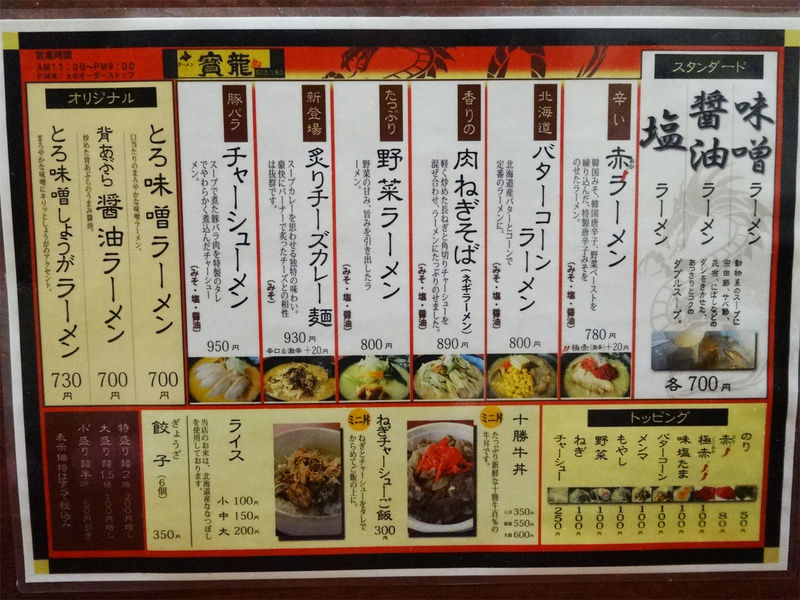 営業時間
AM11:00〜PM9:00
PM8:30オーダーストップ
ラーメン
寳龍
スタンダード
味噌ラーメン
醤油ラーメン
塩ラーメン
動物系のスープに
宗田節、サバ節、
昆布、にぼしなどの
ダシをきかせた、
あっさりとコクの
ダブルスープ。
各700円
辛い
赤ラーメン
韓国みそ、韓国唐辛子、野菜ペーストを
練り込んだ、特製唐辛子みそを
のせたラーメン。
780円
極赤(激辛)+20円
北海道
バターコーンラーメン
北海道産バターとコーンで
定番のラーメンに。
(みそ・塩・醤油)
800円
香りの
肉ねぎそば(ネギラーメン)
軽く炒めた長ねぎと角切りチャーシューを
混ぜ合わせ、ラーメンにたっぷりのせました。
(みそ・塩・醤油)
890円
たっぷり
野菜ラーメン
野菜の甘み、旨みを引き出したラ
ーメン。
(みそ・塩・醤油)
800円
新登場
炙りチーズカレー麺
スープカレーを思わせる独特の味わい。
豪快にバーナーで炙ったチーズとの相性
は抜群です。
(みそ)
930円
辛口&激辛+20円
豚バラ
チャーシューメン
スープで煮た豚バラ肉を特製のタレ
でやわらかく煮込んだチャーシュー
メン。
(みそ・塩・醤油)
950円
オリジナル
とろ味噌ラーメン
口当たりのまろやかな味噌ラーメン。
700円
背あぶら醤油ラーメン
炒めた背あぶらのうまみ醤油。
700円
とろ味噌しょうがラーメン
まろやかな味噌にキリッとしょうがのアクセント。
730円
トッピング
のり 50円
赤 80円
極赤 100円
味塩たま 100円
バターコーン 100円
メンマ 100円
もやし 100円
野菜 100円
ねぎ 100円
チャーシュー 250円
ミニ丼
十勝牛丼
たっぷり新鮮な十勝牛百%の
牛丼です。
350円
550円
大盛 600円
ミニ丼
ねぎチャーシューご飯
ねぎとチャーシューをタレで
からめてご飯の上に。
300円
ライス
当店のお米は、北海道産ななつぼし
を使用しております。
小 100円
中 150円
大 200円
ぎょうざ
餃子(6個)
350円
特盛り麺2倍 200円増し
大盛り麺1.5倍 100円増し
小盛り麺半分
表示価格はすべて税込み